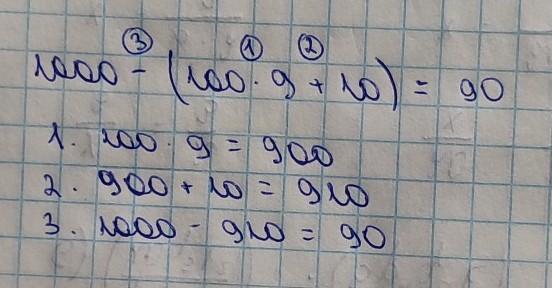 ③ ① ②
1000 - (100 · 9 + 10) = 90
1. 100 · 9 = 900
2. 900 + 10 = 910
3. 1000 - 910 = 90